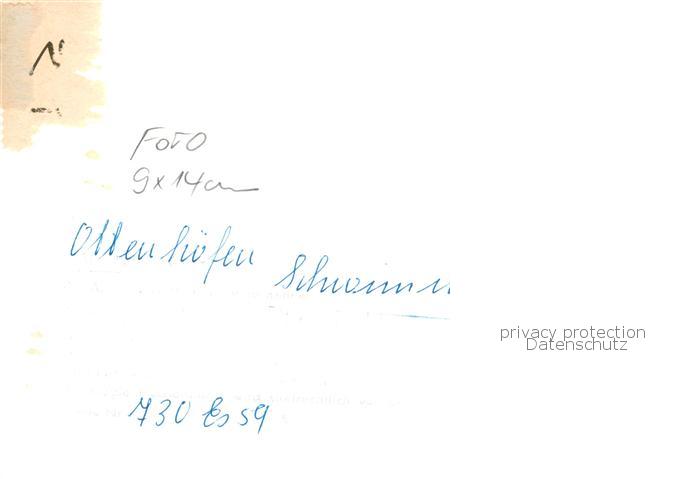 FOTO
9x14cm
Ottenhöfen Schwimm
privacy protection
Datenschutz
730 Es 59